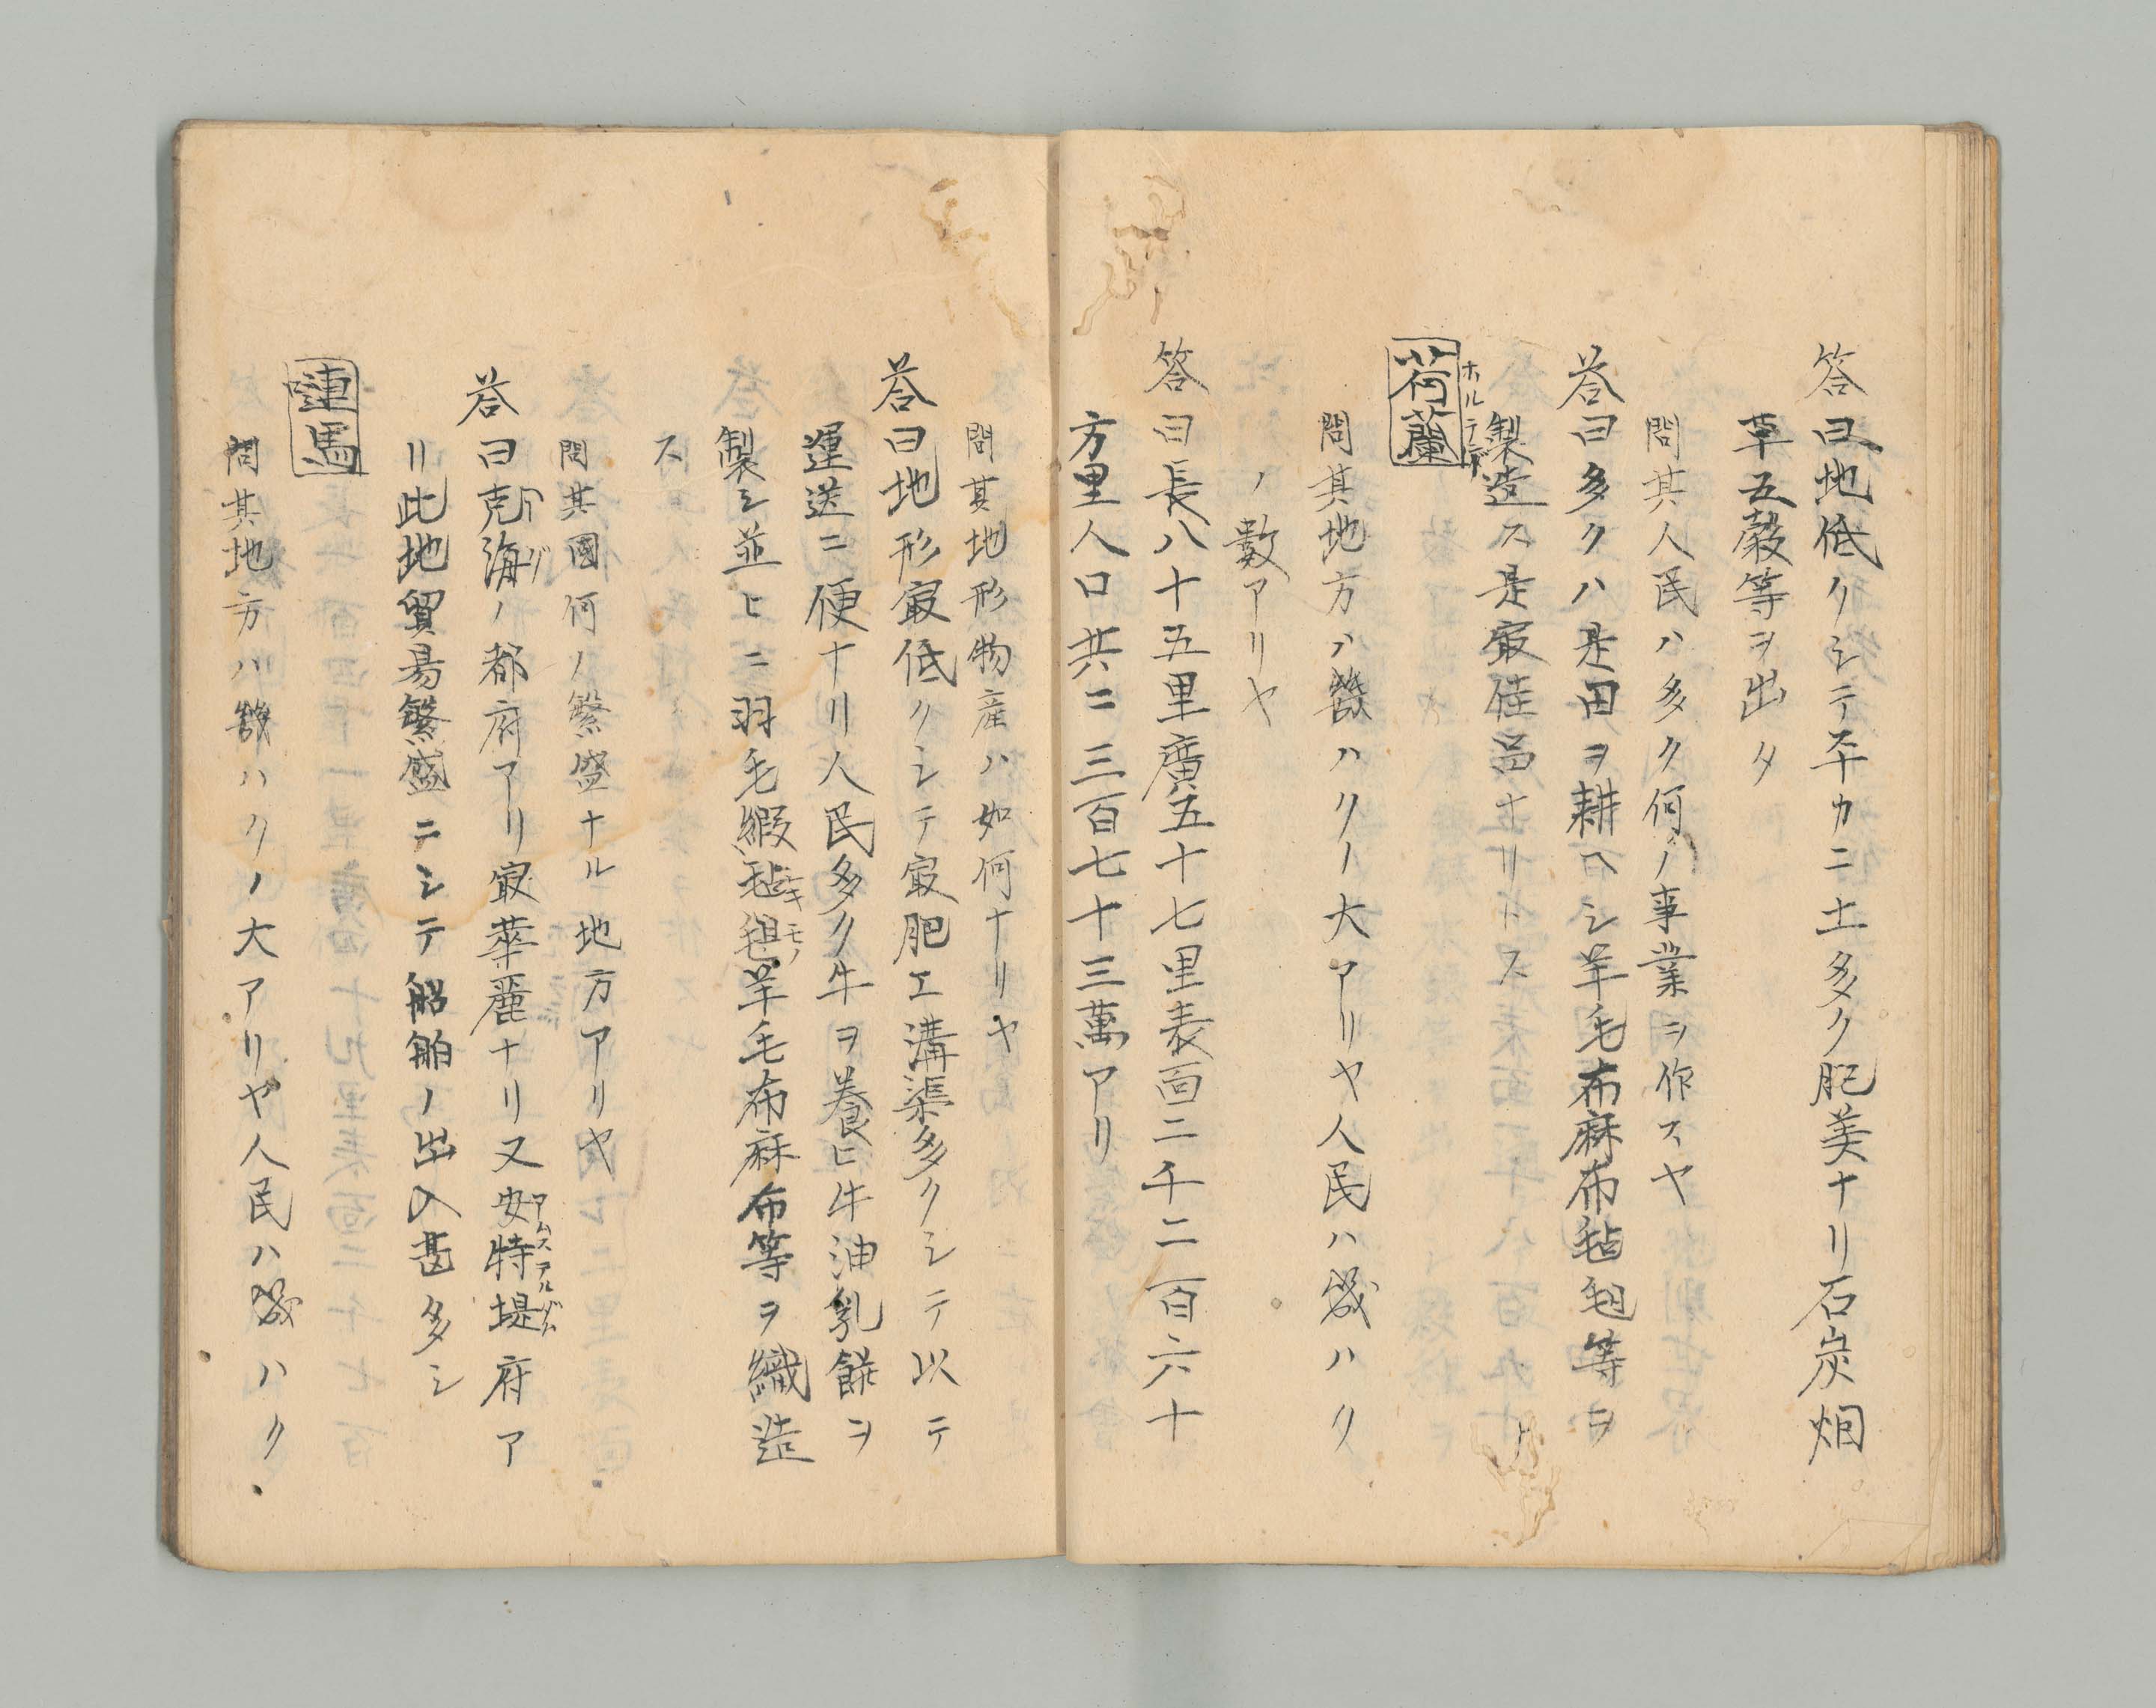 答曰地低クシテ平カニ土多ク肥美ナリ石炭烟
草五穀等ヲ出タ
問其人民ハ多ク何ノ事業ヲ作スヤ
荅曰多クハ是田ヲ耕ヘシ羊毛布麻布毡毯等ヲ
製造ス是寂佳品ナリトス
荷蘭
問其地方ハ幾ハクノ大アリヤ人民ハ幾ハク
ノ數アリヤ
答曰長八十五里廣五十七里表面二千二百六十
方里人口共ニ三百七十三萬アリ
問其地形物産ハ如何ナリヤ
荅曰地形寂低クシテ寂肥エ溝渠多クシテ以テ
運送ニ便ナリ人民多ク牛ヲ養ヒ牛油乳餅ヲ
製シ並ヒニ羽毛緞毡毯羊毛布麻布等ヲ織造
ス
問其國何ノ繁盛ナル地方アリヤ
荅曰克海ノ都府アリ寂華麗ナリ又安特堤府ア
リ此地貿易繁盛ニシテ船舶ノ出入甚多シ
嗹馬
問其地方ハ幾ハクノ大アリヤ人民ハ幾ハク